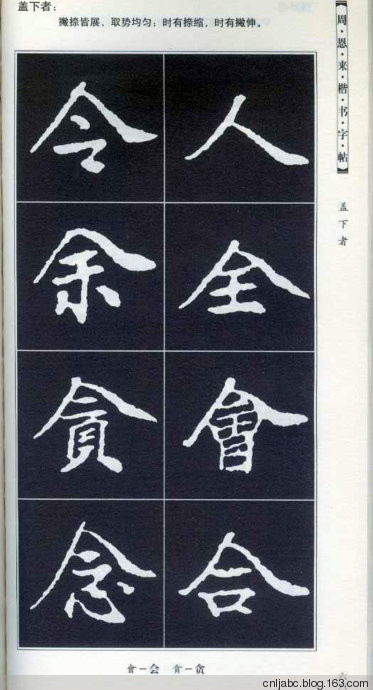 盖下者：
撇捺皆展，取势均匀；时有捺缩，时有撇伸。
【周·恩·来·楷·书·字·帖】
盖下者
人
全
會
合
令
余
貪
念
會-会 貪-贪
cnljabc.blog.163.com